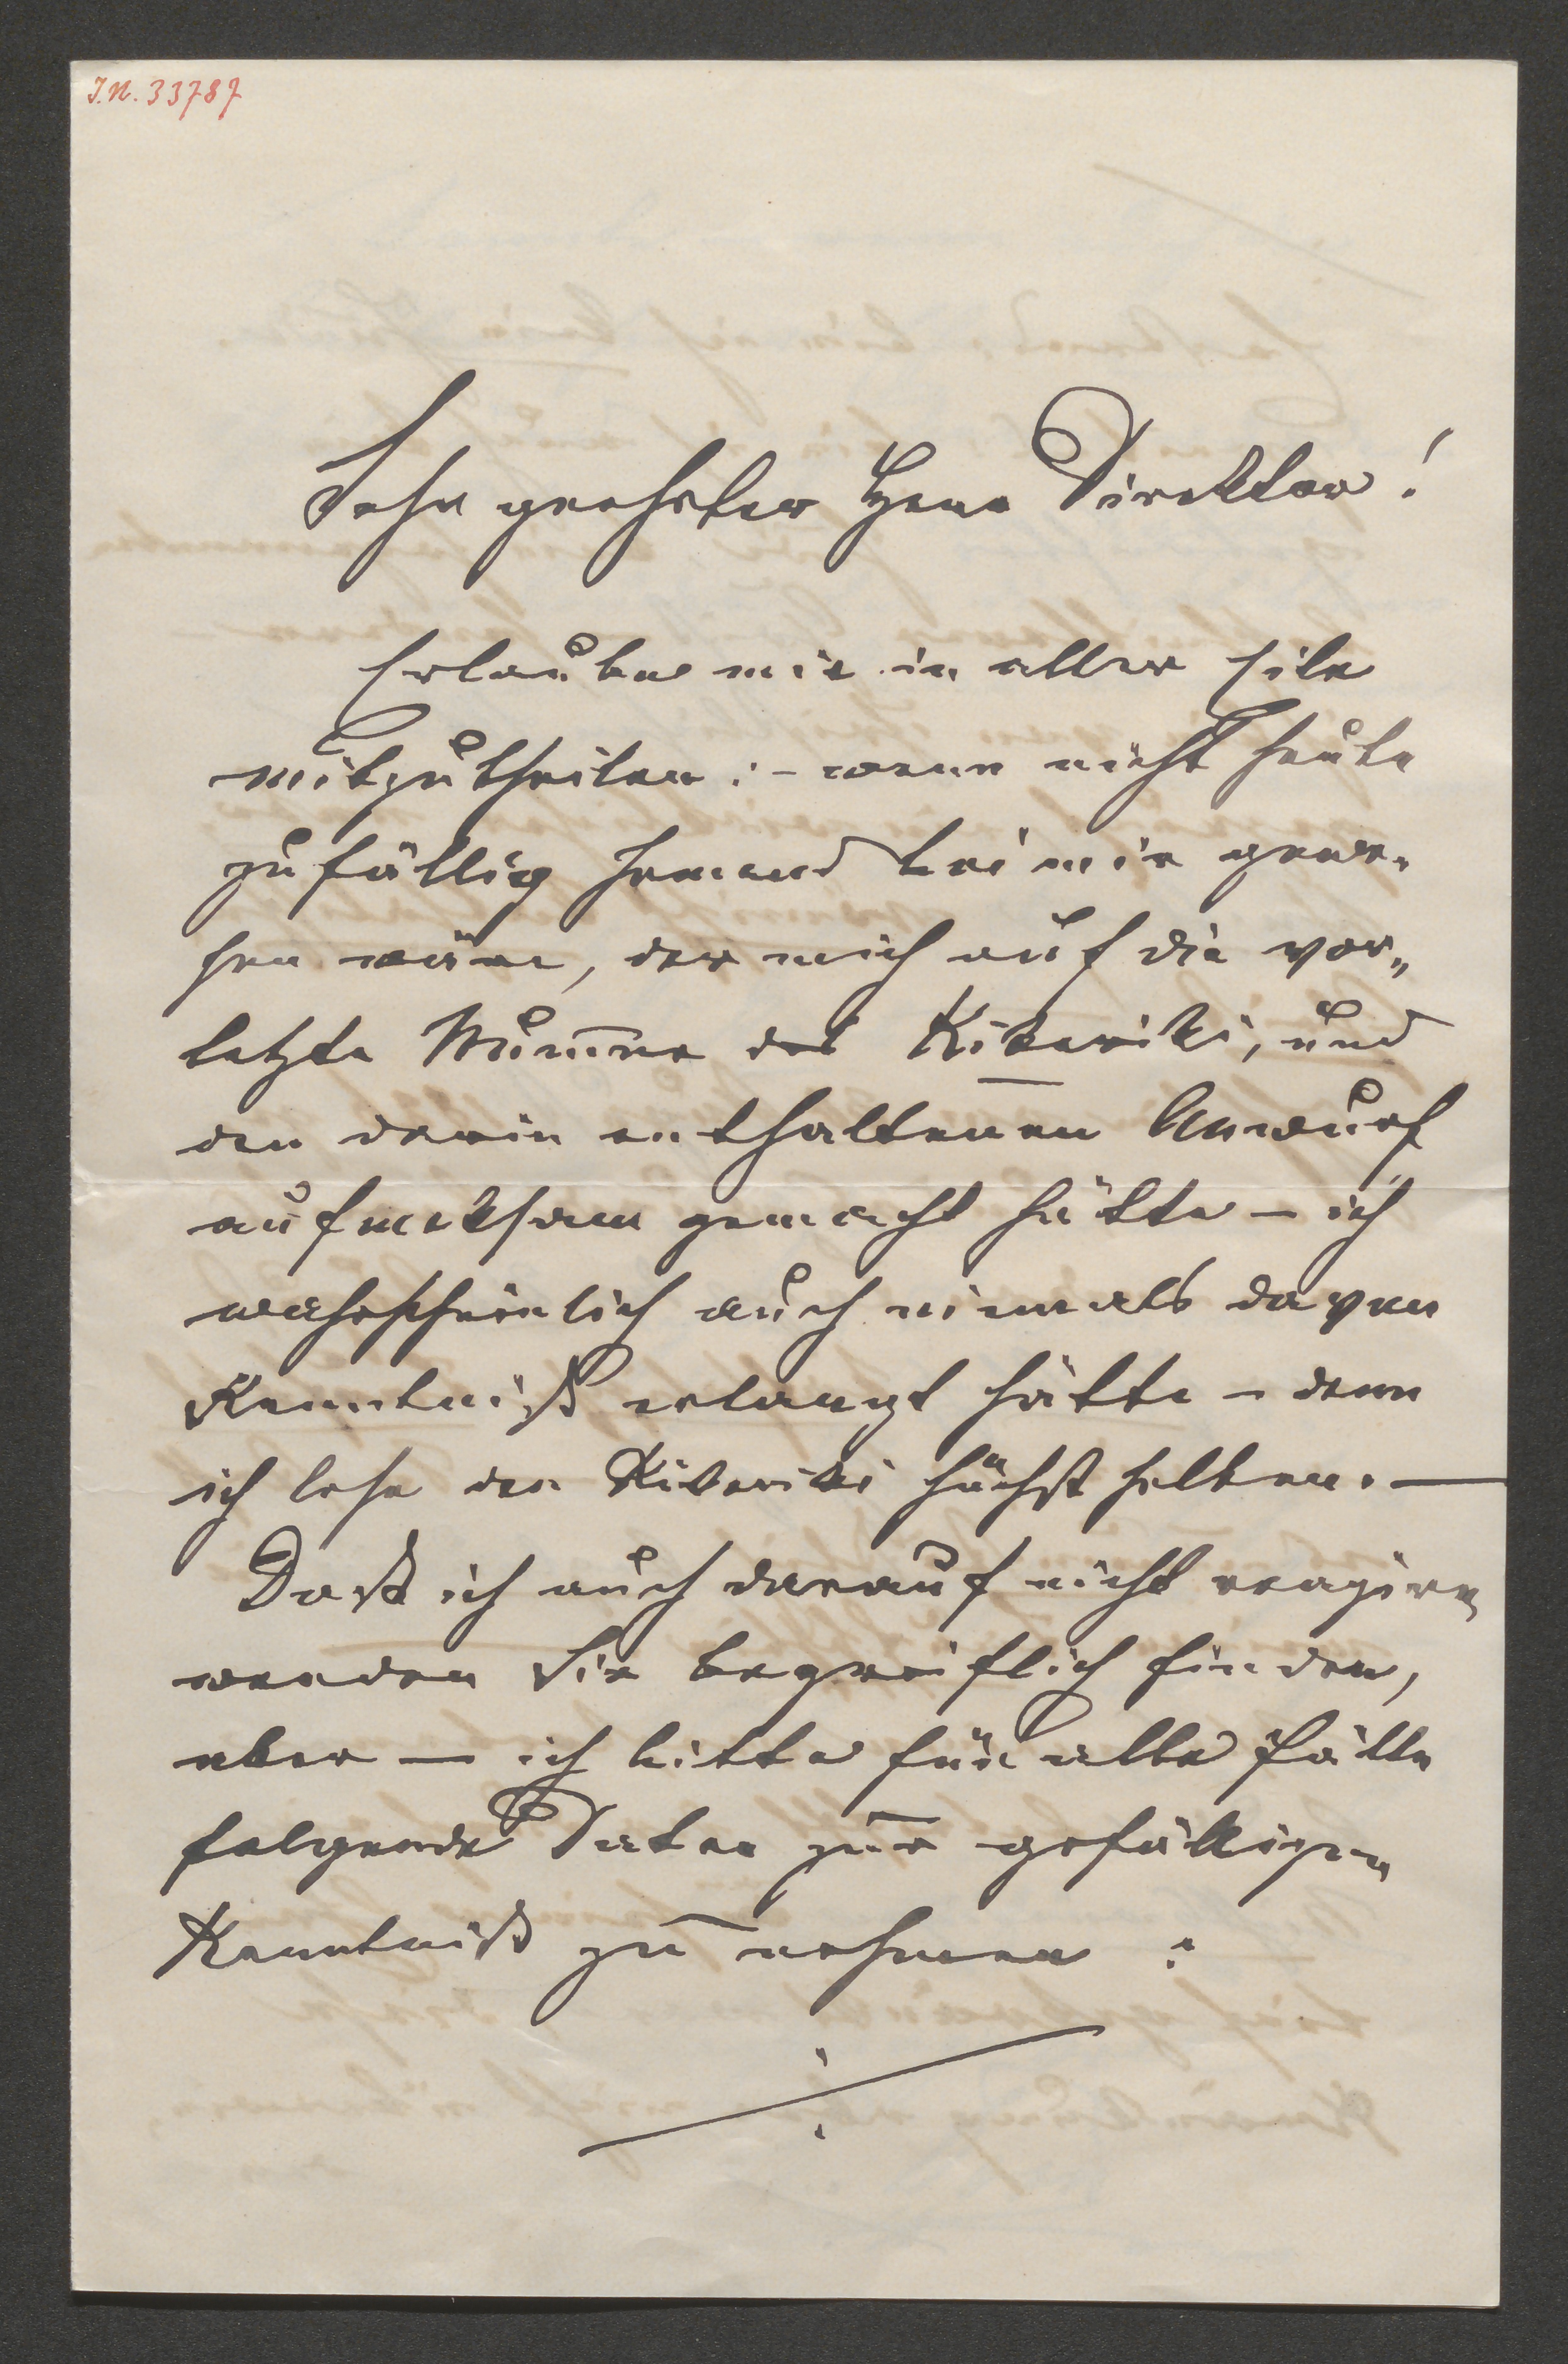 I.N. 33787
Sehr geehrter Herr Direktor!
Erlaube mir in aller Eile
mitzutheilen: – wenn nicht heute
zufällig Jemand bei mir gewe-
sen wäre, der mich auf die vor„
letzte Num̅er des Kikeriki, und
den darin enthaltenen Anwurf
aufmerksam gemacht hätte – ich
wahrscheinlich auch niemals davon
Kenntniß erlangt hätte – denn
ich lese den Kikeriki höchst selten. —
Daß ich auch darauf nicht reagire,
werden Sie begreiflich finden,
aber – ich bitte für alle Fälle
folgende Daten zur gefälligen
Kenntniß zu nehmen :